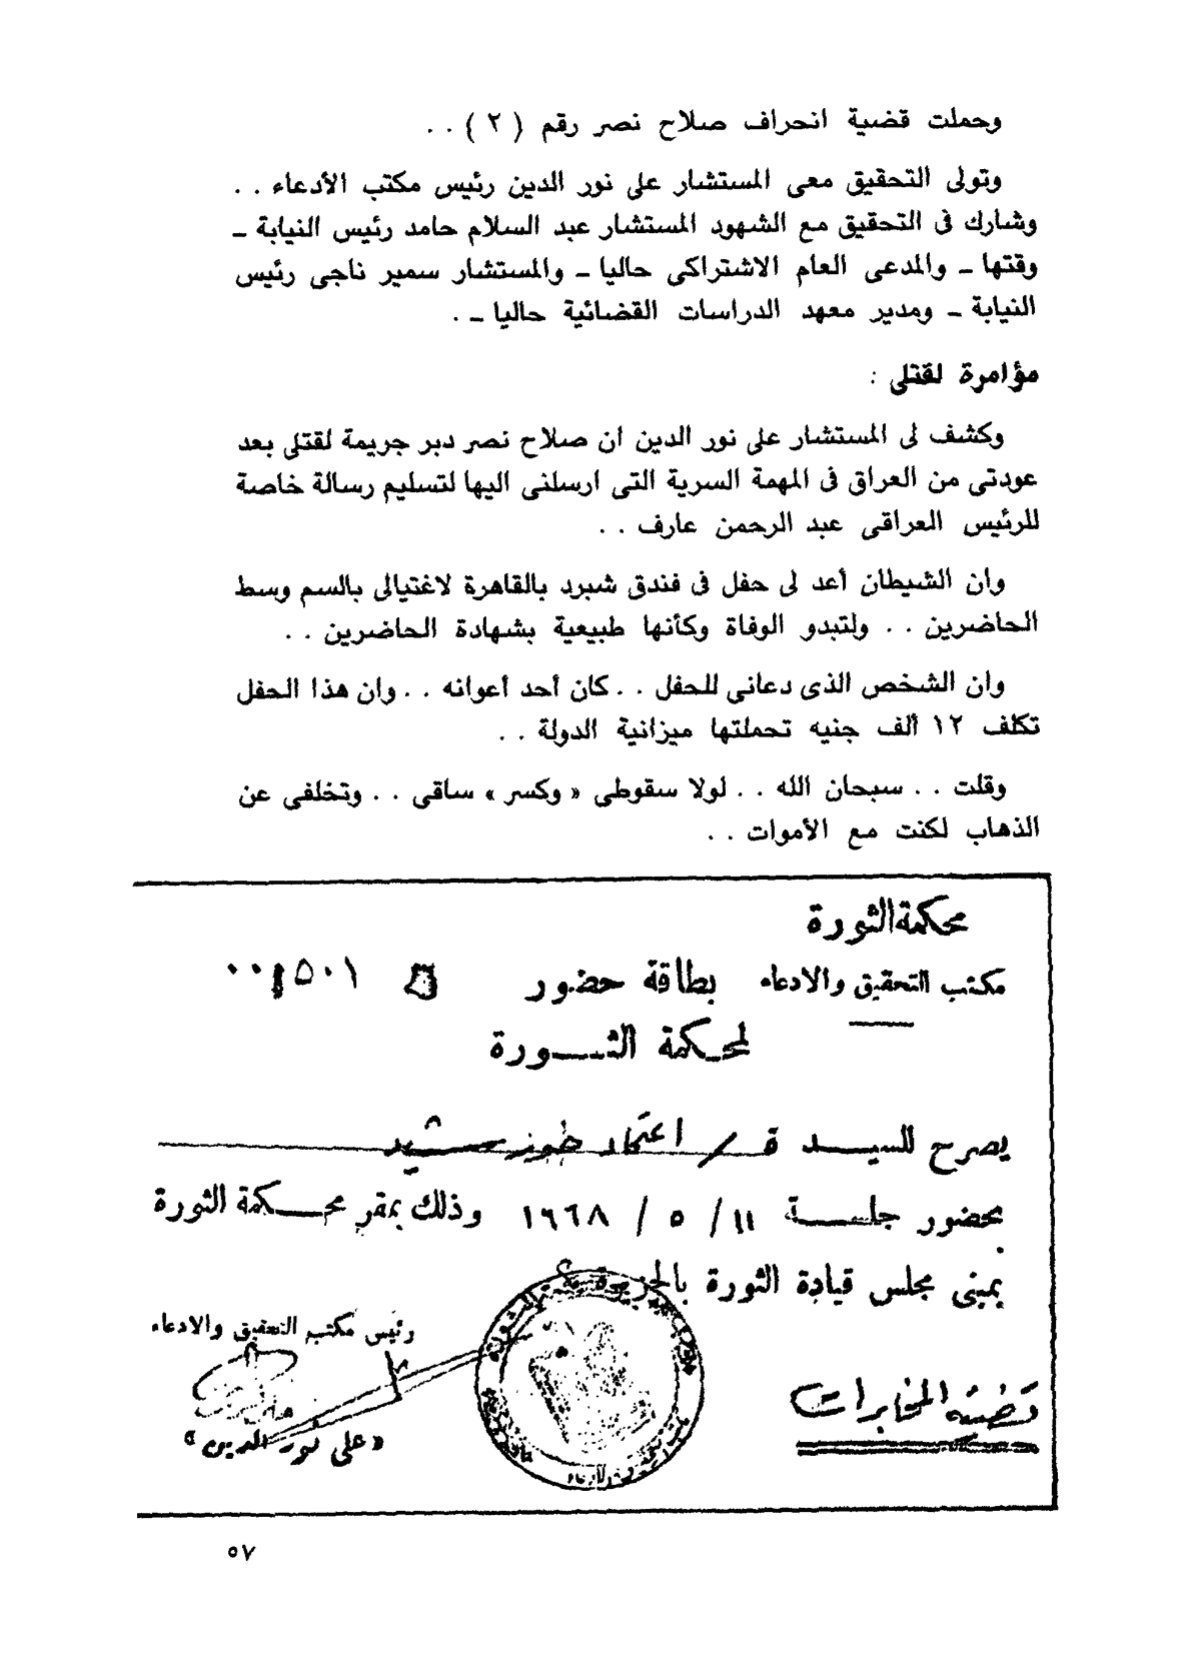 وحملت قضية انحراف صلاح نصر رقم ( ٢ ) . .
وتولى التحقيق معى المستشار على نور الدين رئيس مكتب الأدعاء . .
وشارك فى التحقيق مع الشهود المستشار عبد السلام حامد رئيس النيابة ـ
وقتها ـ والمدعى العام الاشتراكى حاليا ـ والمستشار سمير ناجى رئيس
النيابة ـ ومدير معهد الدراسات القضائية حاليا ـ .
مؤامرة لقتلى :
وكشف لى المستشار على نور الدين ان صلاح نصر دبر جريمة لقتلى بعد
عودتى من العراق فى المهمة السرية التى ارسلنى اليها لتسليم رسالة خاصة
للرئيس العراقى عبد الرحمن عارف . .
وان الشيطان أعد لى حفل فى فندق شبرد بالقاهرة لاغتيالى بالسم وسط
الحاضرين . . ولتبدو الوفاة وكأنها طبيعية بشهادة الحاضرين . .
وان الشخص الذى دعانى للحفل . . كان أحد أعوانه . . وان هذا الحفل
تكلف ١٢ ألف جنيه تحملتها ميزانية الدولة . .
وقلت . . سبحان الله . . لولا سقوطى « وكسر » ساقى . . وتخلفى عن
الذهاب لكنت مع الأموات . .
محكمة الثورة
مكتب التحقيق والادعاء بطاقة حضور
لمحكمة الثـــورة
يصرح للسيـــد ة / اعتماد خورشيد
بحضور جلســـة ١١ / ٥ / ١٩٦٨ وذلك بمقر محـــكمة الثورة
بمبنى مجلس قيادة الثورة بالجزيرة
رئيس مكتب التحقيق والادعاء
قضية المخابرات
« على نور الدين »
٥٧